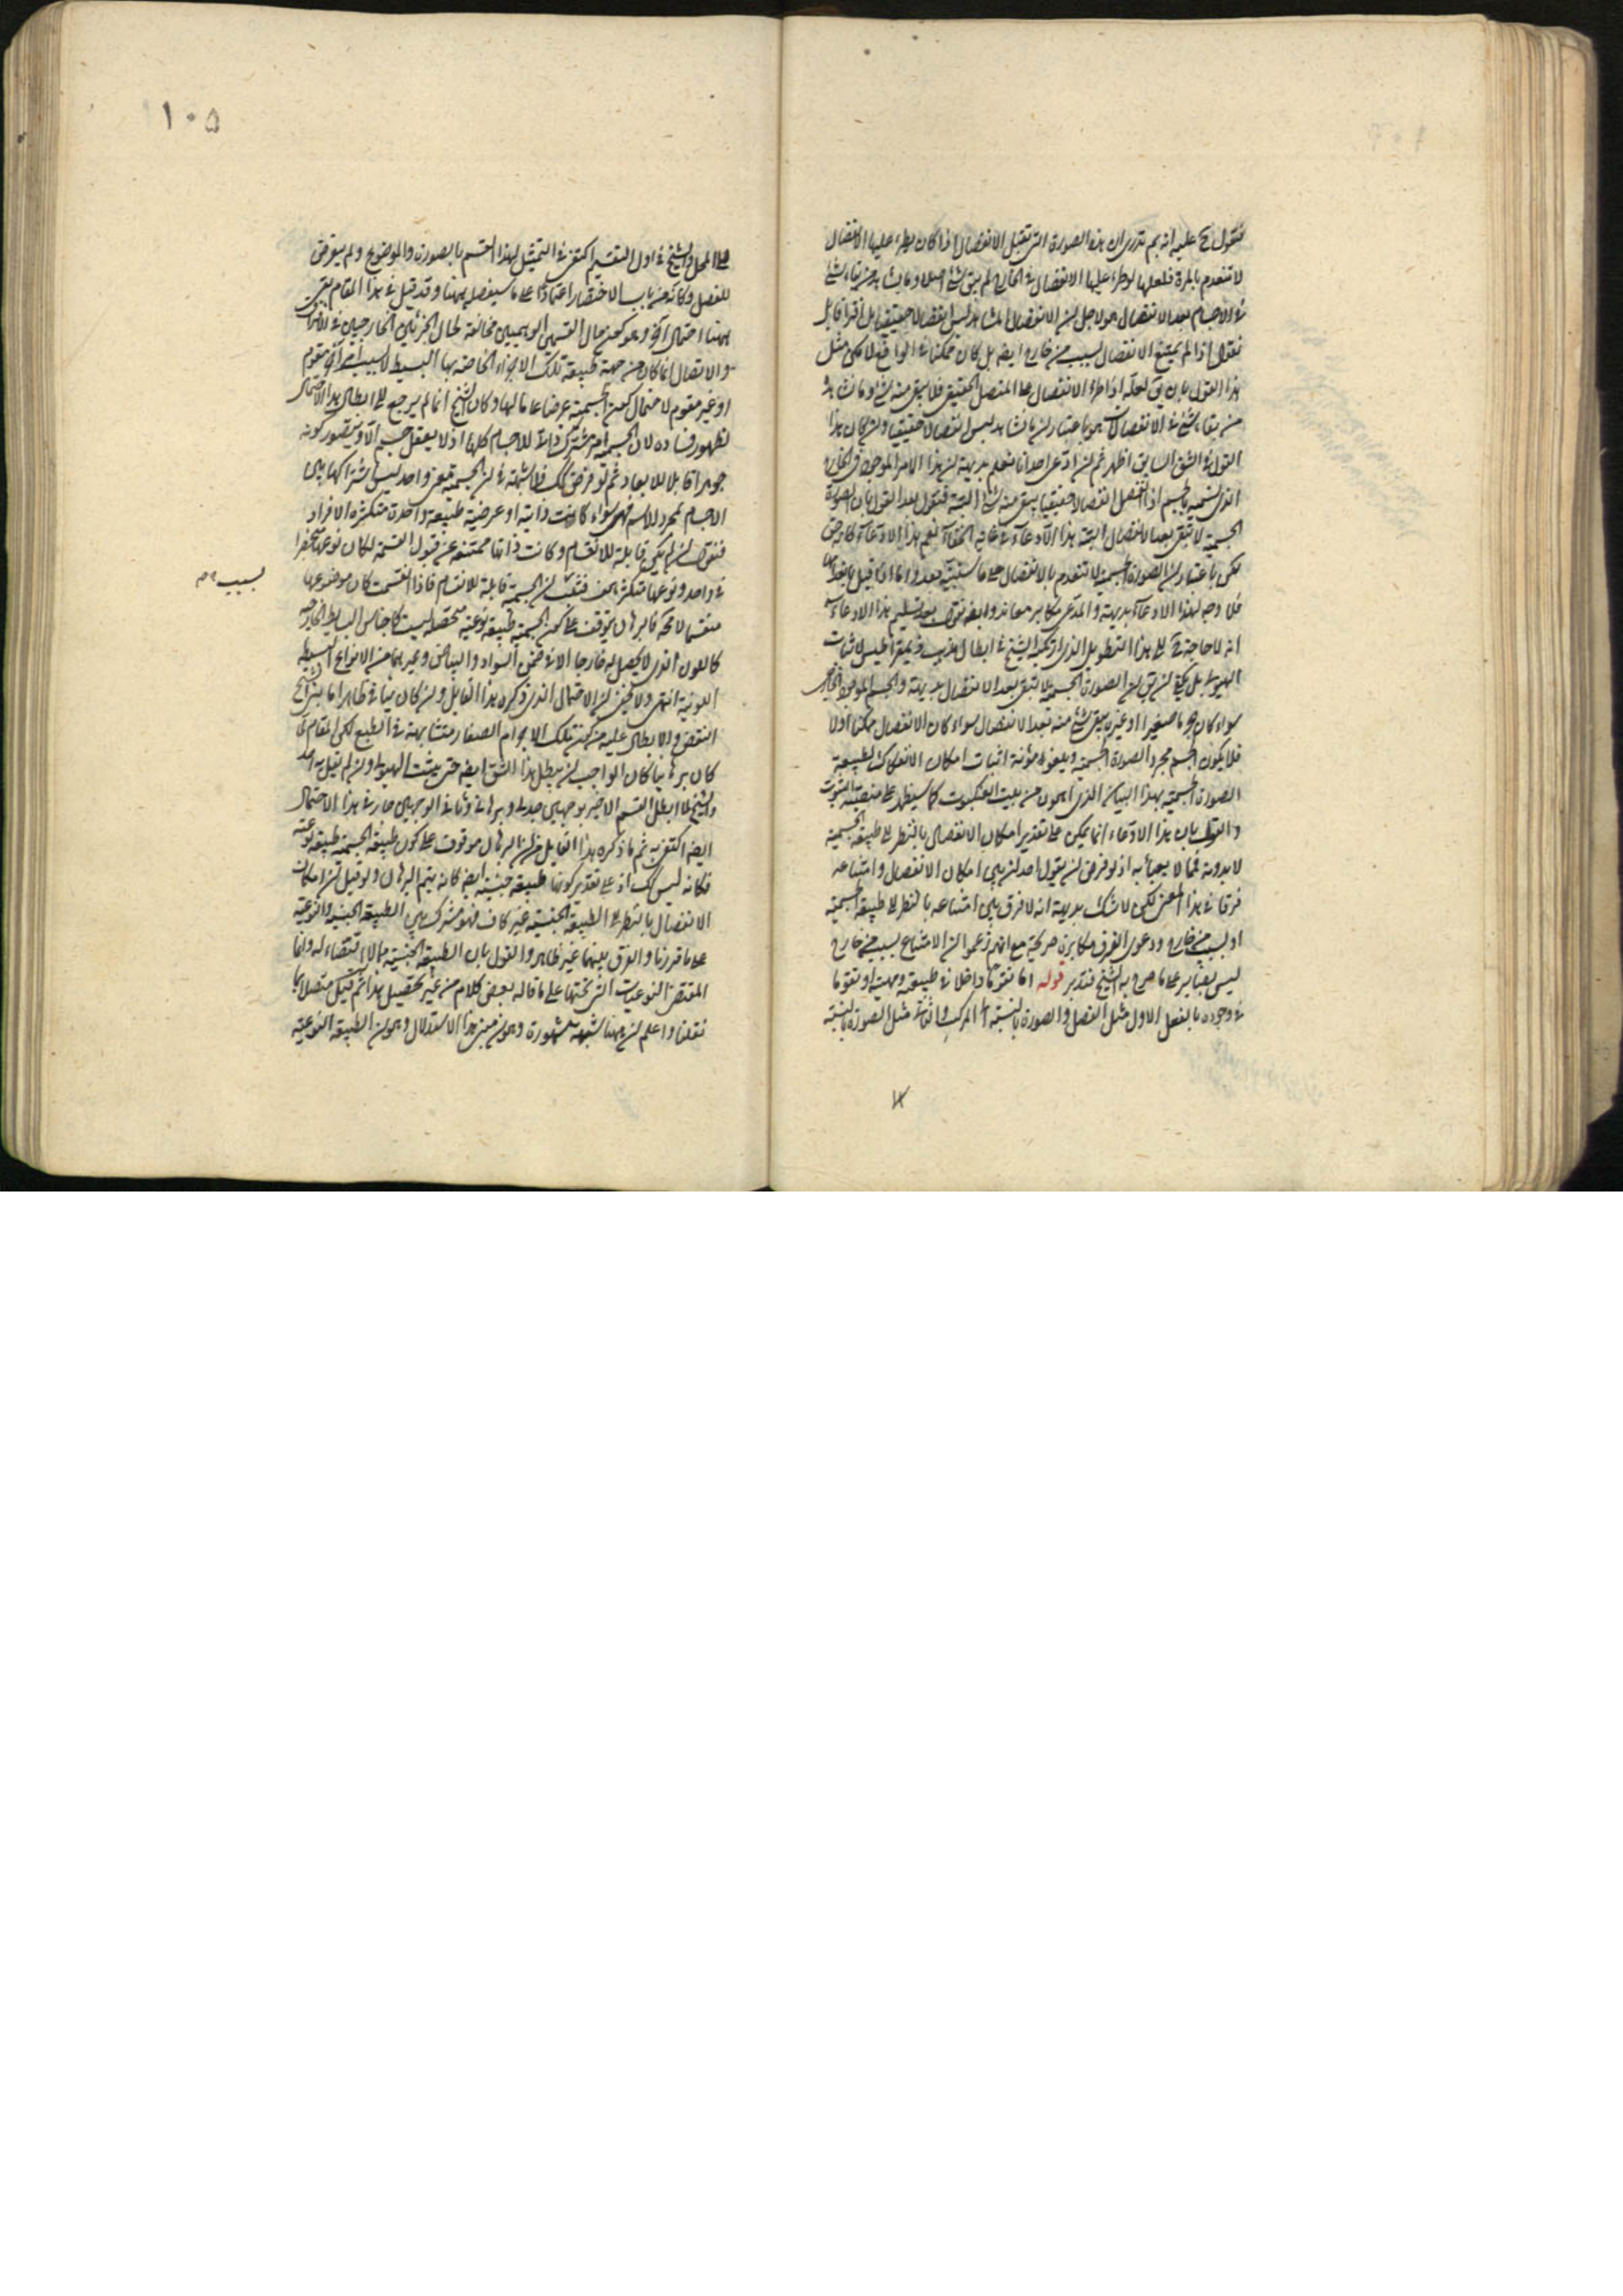 فنقول ح عليه انه بم تدرى ان هذه الصورة التى تقبل الانفصال اذا كان يطرء عليها الانفصال
لا تنعدم بالمرة فلعلها لو طرء عليها الانفصال فى الخارج لم يبق شئ اصلا وما يشاهد من بقاء شئ
فى الاجسام بعد الانفصال هو لاجل ان الانفصال المشاهد ليس انفصالا حقيقيا بل
نقول اذا لم يمتنع الانفصال بسبب من خارج ايضا بل كان ممكنا فى الواقع لامكن مثل
هذا القول بان يق لعله اذا طرء الانفصال على المتصل الحقيقى فلا يبقى منه شئ وما نشاهد
من بقاء شئ فى الانفصالات هو باعتبار ان ما نشاهد ليس انفصالا حقيقيا وان كان هذا
القول فى الشق السابق اظهر ثم ان ادعى احد انا نعلم بديهة ان هذا الامر الموجود فى الخارج
الذى نسميه بالجسم اذا انفصل انفصالا حقيقيا يبقى منه شئ البتة فنقول بعد القول بان الصورة
الجسمية لا تبقى بعد الانفصال البتة هذا الادعاء فى غاية الخفاء نعم هذا الادعاء
لكن باعتبار ان الصورة الجسمية لا تنعدم بالانفصال على ما سنبينه بعد واما
فلا وجه لهذا الادعاء بديهة والمدعى مكابر معاند وايضا نقول بعد تسليم هذا الادعاء
انه لا حاجة ح الى هذا التطويل الذى ارتكبه الشيخ فى ابطال مذهب ذيمقراطيس لاثبات
الهيولى بل يكفى ان يق ان الصورة الجسمية لا تبقى بعد الانفصال بديهة والجسم الموجود فى الخارج
سواء كان جسما صغيرا او غيره يبقى شئ منه بعد الانفصال سواء كان الانفصال ممكنا او لا
فلا يكون الجسم مجرد الصورة الجسمية ويلغو مؤنة اثبات امكان الانفكاك لطبيعة
الصورة الجسمية بهذا البيان الذى اهون من بيت العنكبوت كما سيظهر على منصة الثبوت
والقول بان هذا الادعاء انما يمكن على تقدير امكان الانفصال بالنظر الى طبيعة الجسمية
لا بدونه فمما لا يعبأ به اذ لو فرض ان يقول احد ان بين امكان الانفصال وامتناعه
فرقا فى هذا المعنى لكن لا شك بديهة انه لا فرق بين امتناعه بالنظر الى طبيعة الجسمية
او لسبب من خارج ودعوى الفرق مكابرة صريحة مع انهم زعموا ان الامتناع بسبب من خارج
ليس بضاير على ما صرح به الشيخ فتدبر قوله اما تقوما داخلا فى طبيعته ومهيته او تقوما
فى وجوده بالفعل الاول مثل الفصل والصورة بالنسبة الى المركب والثانى مثل الصورة بالنسبة
١٠٥
الى المحل والشيخ فى اول التقسيم اكتفى فى التمثيل لهذا القسم بالصورة والموضوع ولم يتعرض
للفصل وكانه من باب الاختصار اعتمادا على ما سيفصل ههنا وقد قيل فى هذا المقام بقى
ههنا احتمال آخر وهو كون حال القسمين الوهميين مخالفة لحال الجزئين الخارجيين فى الافتراق
والاتصال انما كان من جهة طبيعة تلك الاجزاء الخاصة بها البسيط لا بسبب امر آخر مقوم
او غير مقوم لاحتمال كون الجسمية عرضا عاما لها وكان الشيخ انما لم يرجع الى ابطال هذا الاحتمال
لظهور فساده لان الجسمية امر مشترك ذاتا للاجسام كلها اذ لا يعقل جسم الا ويتصور كونه
جوهرا قابلا للابعاد ثم لو فرض كك فلا شبهة فى ان الجسمية معنى واحد ليس اشتراكها بين
الاجسام لمجرد الاسم فهى سواء كانت ذاتية او عرضية طبيعة واحدة متكثرة الافراد
فنقول ان لم يكن قابلة للانقسام وكانت ذاتها ممتنعة عن قبول القسمة لكان نوعها منحصرا
فى واحد ونوعها متكثر هف فثبت ان الجسمية قابلة للانقسام فاذا انقسمت كان موضوعها
بسبب
منقسما لا محة فالبرهان يتوقف على كون الجسمية طبيعة نوعية محصلة ليست كاجناس البسايط الخارجية
كاللون الذى لا يحصل له خارجا الا فى ضمن السواد والبياض وغيرهما من الانواع البسيطة
اللونية انتهى ولا يخفى ان الاحتمال الذى ذكره هذا القايل وان كان
النقض والابطال عليه من كون تلك الاجرام الصغار متشابهة فى الطبع لكن المقام لما
كان برهانيا كان الواجب ان يبطل هذا الشق ايضا حتى يثبت الهيولى وان لم يقل به احد
والشيخ لما ابطل القسم الاخير بوجهين جدلى وبرهانى وثانى الوجهين جار فى هذا الاحتمال
ايضا اكتفى به ثم ما ذكره هذا القايل من ان البرهان موقوف على كون طبيعة الجسمية طبيعة نوعية
فكانه ليس كك اذ على تقدير كونها طبيعة جنسية ايضا كانه يتم البرهان ولو قيل ان امكان
الانفصال بالنظر الى الطبيعة الجنسية غير كاف فهو مشترك بين الطبيعة الجنسية والنوعية
على ما قررنا والفرق بينهما غير ظاهر والقول بان الطبيعة الجنسية مما لا اقتضاء له وانما
المقتضى النوعيات التى تحتها على ما قاله بعض كلام من غير تحصيل هذا ثم قيل متصلا بما
نقلنا واعلم ان ههنا شبهة مشهورة وهو ان مبنى هذا الاستدلال وهو ان الطبيعة النوعية